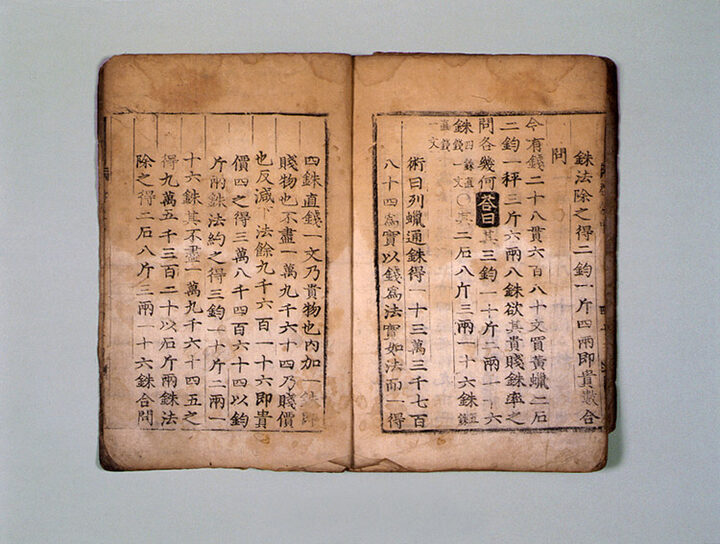 銖法除之得二鈞一斤四兩即貴數合
問
今有錢二十八貫六百八十文買黃蠟二石
二鈞一秤三斤六兩八銖欲其貴賤銖率之
問各幾何答曰其三鈞一十斤二兩一十六
銖四銖直錢一文〇其二石八斤三兩一十六銖五銖
直錢一文
術曰列蠟通銖得一十三萬三千七百
八十四為實以錢為法實如法而一得
四銖直錢一文乃貴物也內加一銖即
賤物也不盡一萬九千六十四乃賤價
也反減下法餘九千六百一十六即貴
價四之得三萬八千四百六十四以鈞
斤兩銖法約之得三鈞一十斤二兩一
十六銖其不盡一萬九千六十四五之
得九萬五千三百二十以石斤兩銖法
除之得二石八斤三兩一十六銖合問